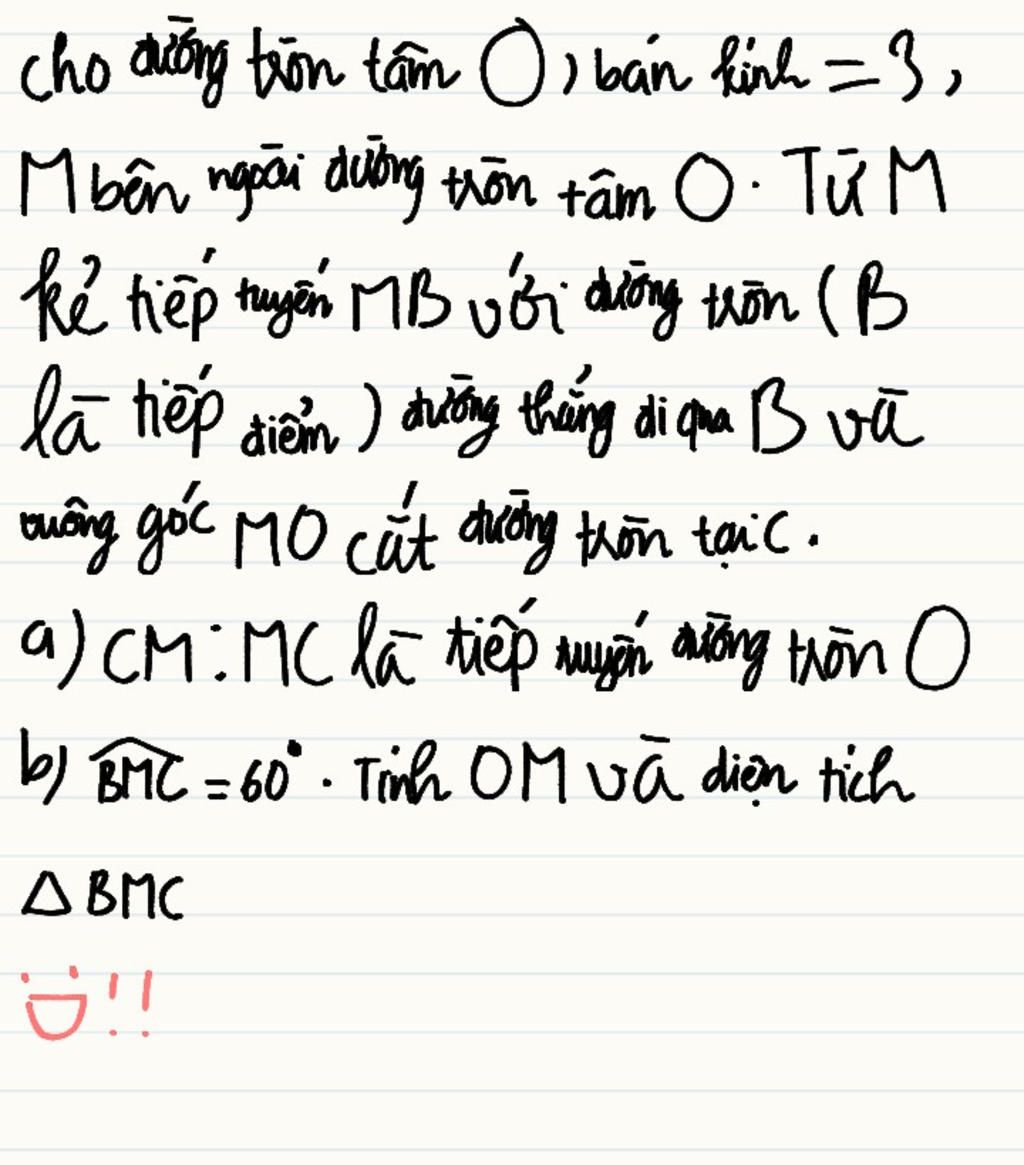 cho đường tròn tâm O, bán kính = 3,
M bên ngoài đường tròn tâm O. Từ M
kẻ tiếp tuyến MB với đường tròn (B
là tiếp điểm) đường thẳng đi qua B và
vuông góc MO cắt đường tròn tại C.
a) CM: MC là tiếp tuyến đường tròn O
b) BMC = 60°. Tính OM và diện tích
Δ BMC
!!